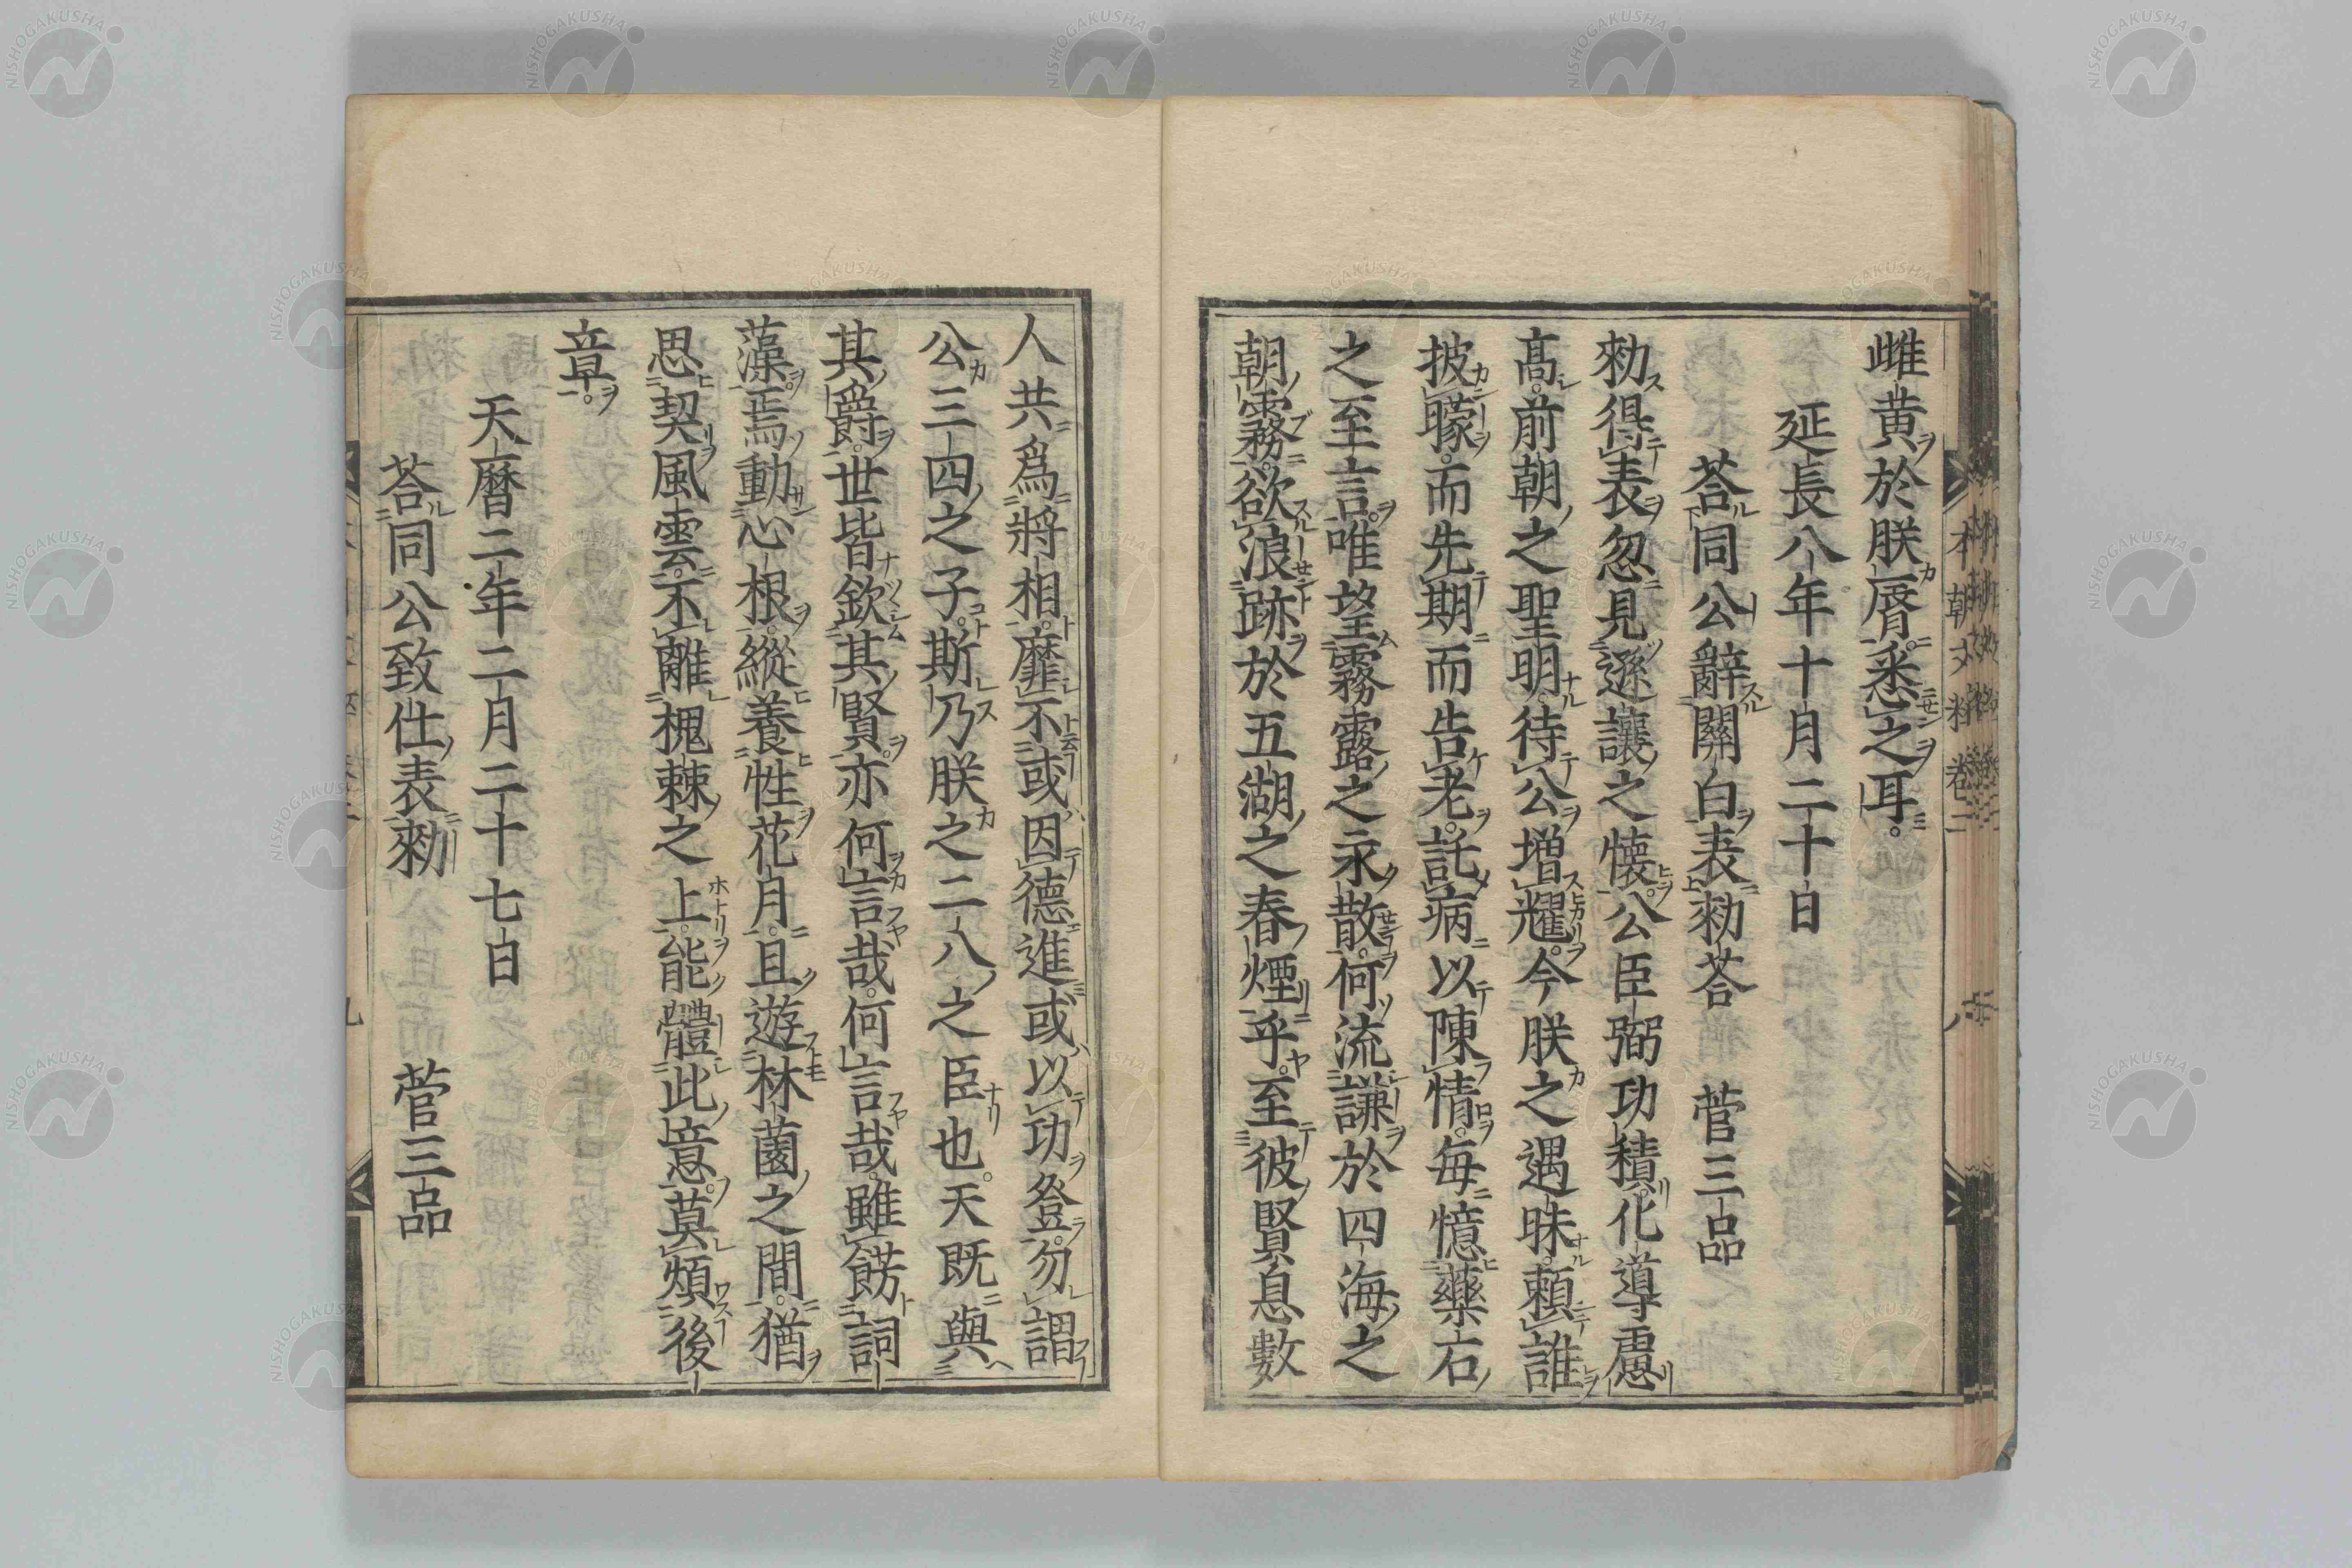 雌黄於朕唇悉之耳。
延長八年十月二十日
荅同公辭關白表勑荅　菅三品
勑得表忽見遜讓之懐。公臣弼功積。化導慮
髙。前朝之聖明。待公増耀。今朕之遇昧。頼誰
披曚。而先期而告老。託病以陳情。毎憶藥石
之至言。唯望霧露之永散。何流謙於四海之
朝霧。欲浪跡於五湖之春煙乎。至彼賢息數
人共爲將相。靡不或因德進或以功登。勿謂
公三四之子。斯乃朕之二八之臣也。天既與
其爵。世皆欽其賢。亦何言哉。何言哉。雖餝詞
藻。焉動心根。縱養性花月。且遊林薗之間。猶
思契風雲。不離槐棘之上。能體此意。莫煩後
章。
天暦二年二月二十七日
荅同公致仕表勑　菅三品
本朝文粋卷二　八
NISHOGAKUSHA